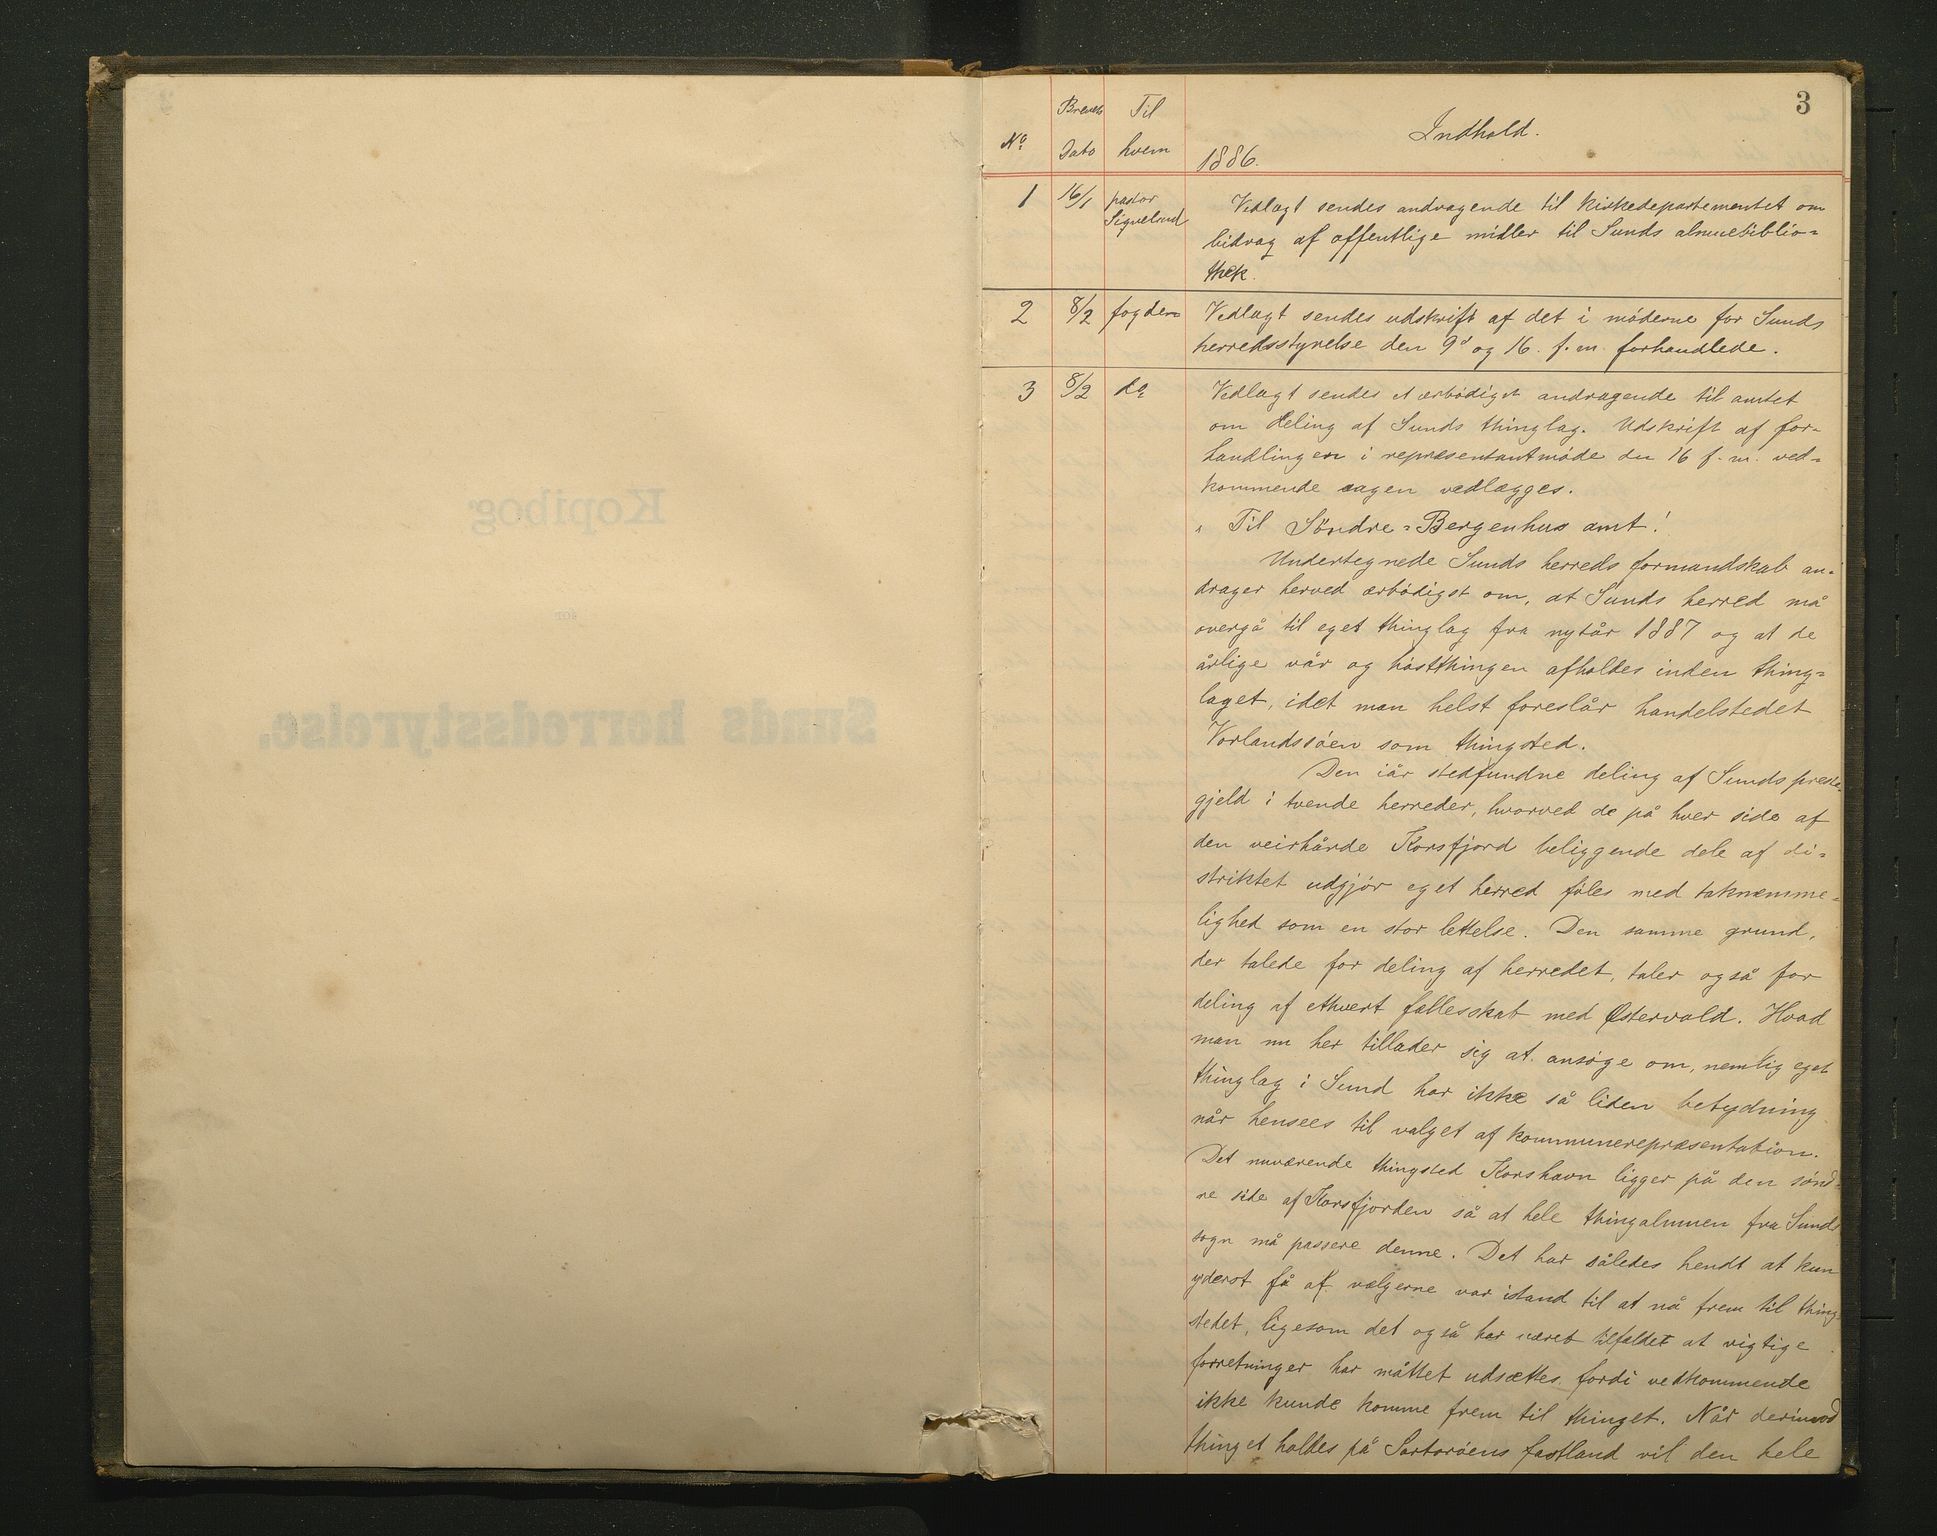 3
Brevets Til
No Dato hvem
Indhold.
1886.
1 16/1 pastor Vedlagt sendes andragende til kirkedepartementet om
bidrag af offentlige midler til Sunds almuebiblio-
thek.
2 8/2 fogden Vedlagt sendes udskrift af det i møderne for Sunds
herredsstyrelse den 9d og 16. f. m. forhandlede.
3 8/2 do Vedlagt sendes et ærbødigst andragende til amtet
om deling af Sunds thinglag. Udskrift af for-
handlingen i repræsentantmøde den 16 f. m. ved-
kommende sagen vedlægges.
„ Til Söndre-Bergenhus amt!
Undertegnede Sunds herreds formandskab an-
drager herved ærbödigst om, at Sunds herred må
overgå til eget thinglag fra nytår 1887 og at de
årlige vår og høstthingen afholdes inden thing-
laget, idet man helst foreslår handelstedet
Vorlandssöen som thingsted.
Den iår stedfundne deling af Sunds preste-
gjeld i tvende herreder, hvorved de på hver side af
den veirhårde Korsfjord beliggende dele af di-
striktet udgjör eget herred föles med taknemme-
lighed som en stor lettelse. Den samme grund,
der talede for deling af herredet, taler også for
deling af ethvert fællesskab med Østervold. Hvad
man nu her tillader sig at ansöge om, nemlig eget
thinglag i Sund har ikke så liden betydning
når hensees til valget af kommunerepræsentation.
Det nuværende thingsted Korshavn ligger på den sönd-
re side af Korsfjorden så at hele thingalmuen fra Sunds
sogn må passere denne. Det har således hendt at kun
yderst få af vælgerne var istand til at nå frem til thing-
stedet, ligesom det også har været tilfældet at vigtige
forretninger har måttet udsættes fordi vedkommende
ikke kunde komme frem til thinget. Når derimod
thinget holdes på Sartoröens fastland vil den hele
Kopibog
for
Sunds herredsstyrelse.